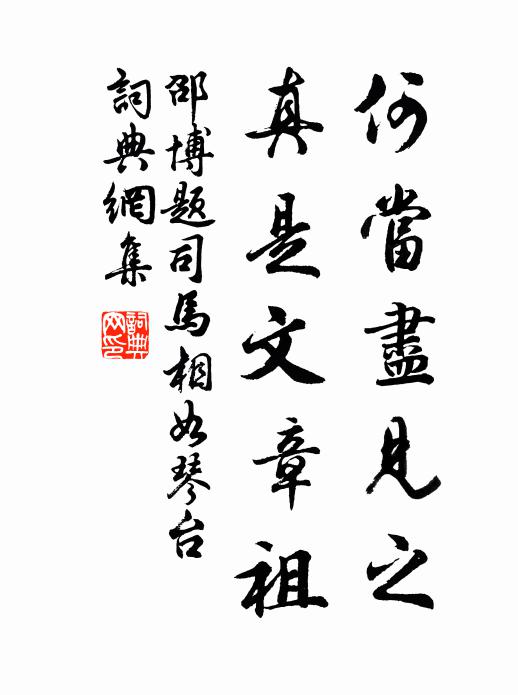 何當盡見之
真是文章祖
邵博題司馬相如琴台
詞典網集
詞典網印